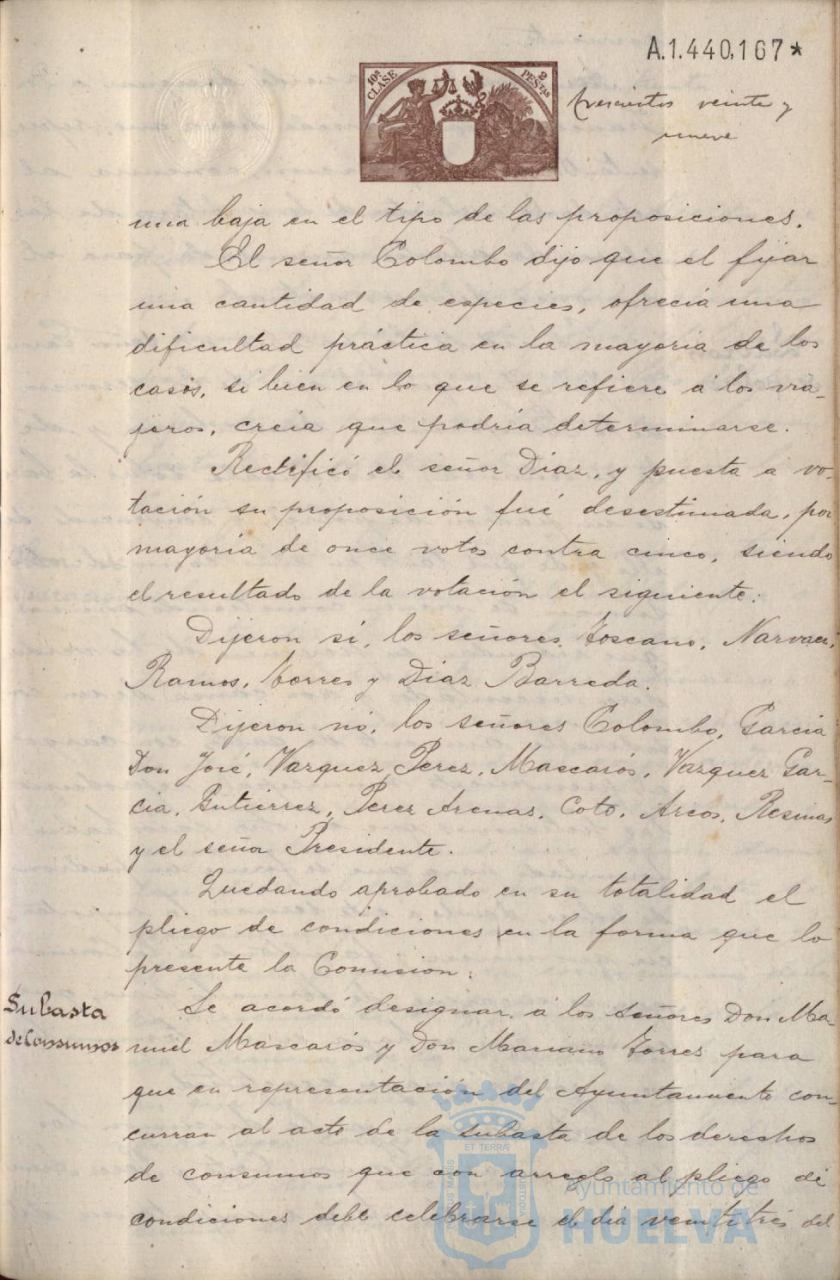 A.1.440,167*
10ª CLASE
2 PESTAS
trescientos veinte y
nueve
una baja en el tipo de las proposiciones.
El señor Colombo dijo que el fijar
una cantidad de especies, ofrecía una
dificultad práctica en la mayoria de los
casos, si bien en lo que se refiere á los via-
jeros, creia que podría determinarse.
Rectificó el señor Díaz, y puesta á vo-
tación su proposición fué desestimada, por
mayoría de once votos contra cinco, siendo
el resultado de la votación el siguiente:
Dijeron sí, los señores Toscano, Narvaez,
Ramos, Torres y Díaz Barreda.
Dijeron nó, los señores Colombo, García
Don José, Vazquez Perez, Mascarós, Vazquez Gar-
cia, Gutierrez, Perez Arenas, Coto, Arcos, Resinas
y el señor Presidente.
Quedando aprobado en su totalidad el
pliego de condiciones en la forma que lo
presente la Comision.
Subasta
de Consumos
Se acordó designar á los señores Don Ma-
nuel Mascarós y Don Mariano Torres para
que en representación del Ayuntamiento con-
curran al acto de la subasta de los derechos
de consumos que con arreglo al pliego de
condiciones debe celebrarse el dia veintitres del
Ayuntamiento de
HUELVA